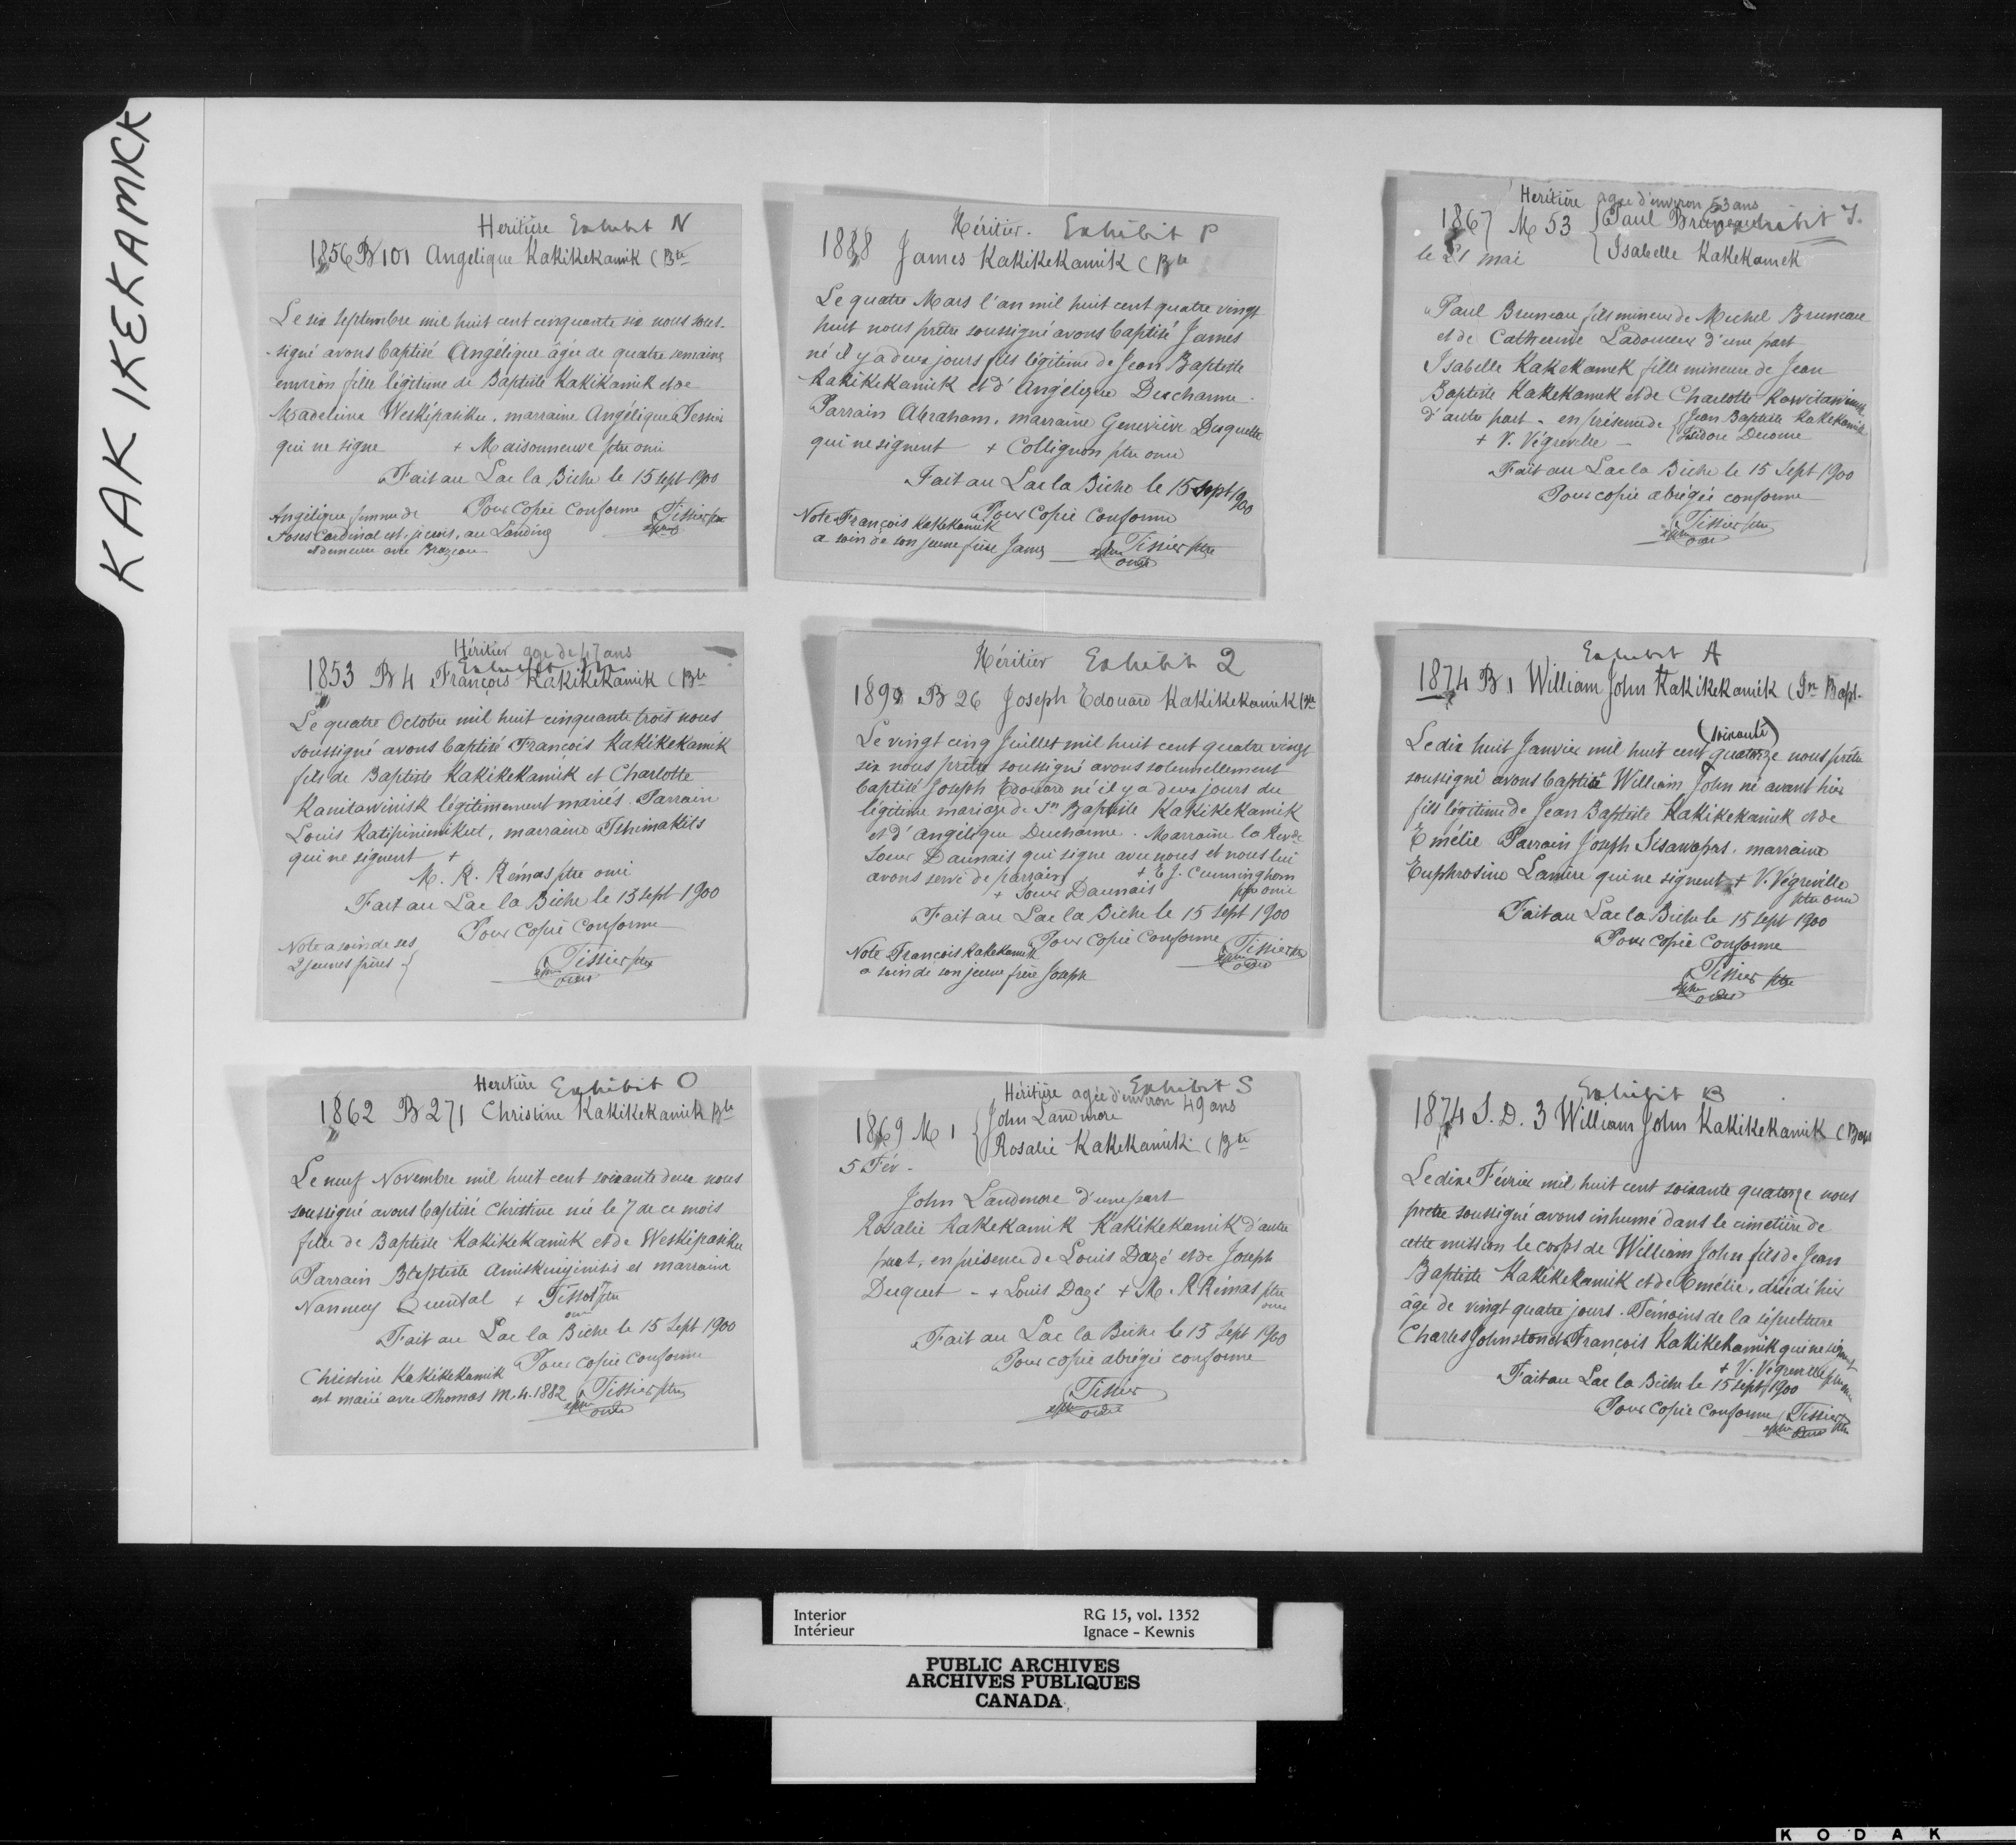 KAKIKEKAMICK
Heritière Exhibit N
1856 B 101 Angelique Kakikekamik (Bte
Le six septembre mil huit cent cinquante six nous sous-
signé avons baptisé Angélique âgée de quatre semaines
environ fille légitime de Baptiste Kakikamik et de
Madeleine Weskipasiku, marraine Angélique Tessier
qui ne signe + Maisonneuve ptre omi
Fait au Lac la Biche le 15 sept 1900
Pour Copie Conforme Tissier ptre
Angélique femme de
Moses Cardinal est, je crois, au Landing
et demeure avec Brazeau
Héritier. Exhibit P
1888 James Kakikekamik (Bte
Le quatre Mars l'an mil huit cent quatre vingt
huit nous prêtre soussigné avons baptisé James
né il y a deux jours fils légitime de Jean Baptiste
Kakikekamik et d'Angélique Ducharme.
Parrain Abraham, marraine Geneviève Duquette
qui ne signent + Collignon ptre omi
Fait au Lac la Biche le 15 sept 1900
Pour Copie Conforme
Note François Kakekamik
a soin de son jeune frère James Tissier ptre
Heritière agée d'environ 53 ans
1867 M 53 { Paul Bruneau Exhibit T.
le 21 mai { Isabelle Kakekamek
Paul Bruneau fils mineur de Michel Bruneau
et de Catherine Ladouceur d'une part
Isabelle Kakekamek fille mineure de Jean
Baptiste Kakekamek et de Charlotte
d'autre part - en présence de { Jean Baptiste Kakekamik
+ V. Végreville - { Isidore Decoine
Fait au Lac la Biche le 15 Sept 1900
Pour copie abrégée conforme
Tissier ptre
Héritier age de 47 ans
1853 B 4 François Kakikekamik (Bte
Le quatre Octobre mil huit cinquante trois nous
soussigné avons baptisé François Kakikekamik
fils de Baptiste Kakikekamik et Charlotte
Kanitawinisk légitimement mariés. Parrain
Louis Katipinimikut, marraine Tchimakits
qui ne signent +
M. R. Rémas ptre omi
Fait au Lac la Biche le 15 sept 1900
Pour Copie Conforme
Note a soin de ses
2 jeunes frères { Tissier ptre
Héritier Exhibit Q
B 26 Joseph Edouard Kakikekamik (Bte
Le vingt cinq Juillet mil huit cent quatre vingt
six nous prêtre soussigné avons solennellement
baptisé Joseph Edouard né il y a deux jours du
légitime mariage de Jn Baptiste Kakikekamik
et d'angélique Ducharme. Marraine la Revde
Soeur Daunais qui signe avec nous et nous lui
avons servi de parrain + E J. Cunningham
+ Soeur Daunais ptre omi
Fait au Lac la Biche le 15 sept 1900
Pour Copie Conforme Tissier ptre
Note François Kakekamik
a soin de son jeune frère Joseph
Exhibit A
1874 B 1 William John Kakikekamik (Jn Bapt.
(soixante)
Le dix huit Janvier mil huit cent quatorze nous prêtre
soussigné avons baptisé William John né avant hier
fils légitime de Jean Baptiste Kakikekamik et de
Emélie Parrain Joseph Sisawapas, marraine
Euphrosine Lamire qui ne signent + V. Végreville
ptre omi
Fait au Lac la Biche le 15 sept 1900
Pour Copie Conforme
Tissier ptre
Heritière Exhibit O
1862 B 271 Christine Kakikekamik Bte
Le neuf Novembre mil huit cent soixante deux nous
soussigné avons baptisé Christine née le 7 de ce mois
fille de Baptiste Kakikekamik et de Weskipasiku
Parrain Baptiste Amiskuyinisis et marraine
Nanncy Quental + Tissot ptre
omi
Fait au Lac la Biche le 15 Sept 1900
Pour Copie Conforme
Christine Kakikekamik
est mariée avec Thomas M. 4. 1882 Tissier ptre
Exhibit S
Héritière agée d'environ 49 ans
1869 M 1 { John Landmore
5 Fév. { Rosalie Kakekamik (Bte
John Landmore d'une part
Rosalie Kakekamik Kakikekamik d'autre
part, en présence de Louis Dazé et de Joseph
Duquet - + Louis Dazé + M. R Rémas ptre
omi
Fait au Lac la Biche le 15 Sept 1900
Pour copie abrégée conforme
Tissier
Exhibit B
1874 S. D. 3 William John Kakikekamik (Bapt
Le dix Février mil huit cent soixante quatorze nous
prêtre soussigné avons inhumé dans le cimetière de
cette mission le corps de William John fils de Jean
Baptiste Kakikekamik et de Emélie, décédé hier
âgé de vingt quatre jours. Témoins de la sépulture
Charles Johnston et François Kakikekamik qui ne signent
+ V. Végreville ptre omi
Fait au Lac la Biche le 15 sept 1900
Pour Copie Conforme Tissier ptre
Interior RG 15, vol. 1352
Intérieur Ignace - Kewnis
PUBLIC ARCHIVES
ARCHIVES PUBLIQUES
CANADA
KODAK